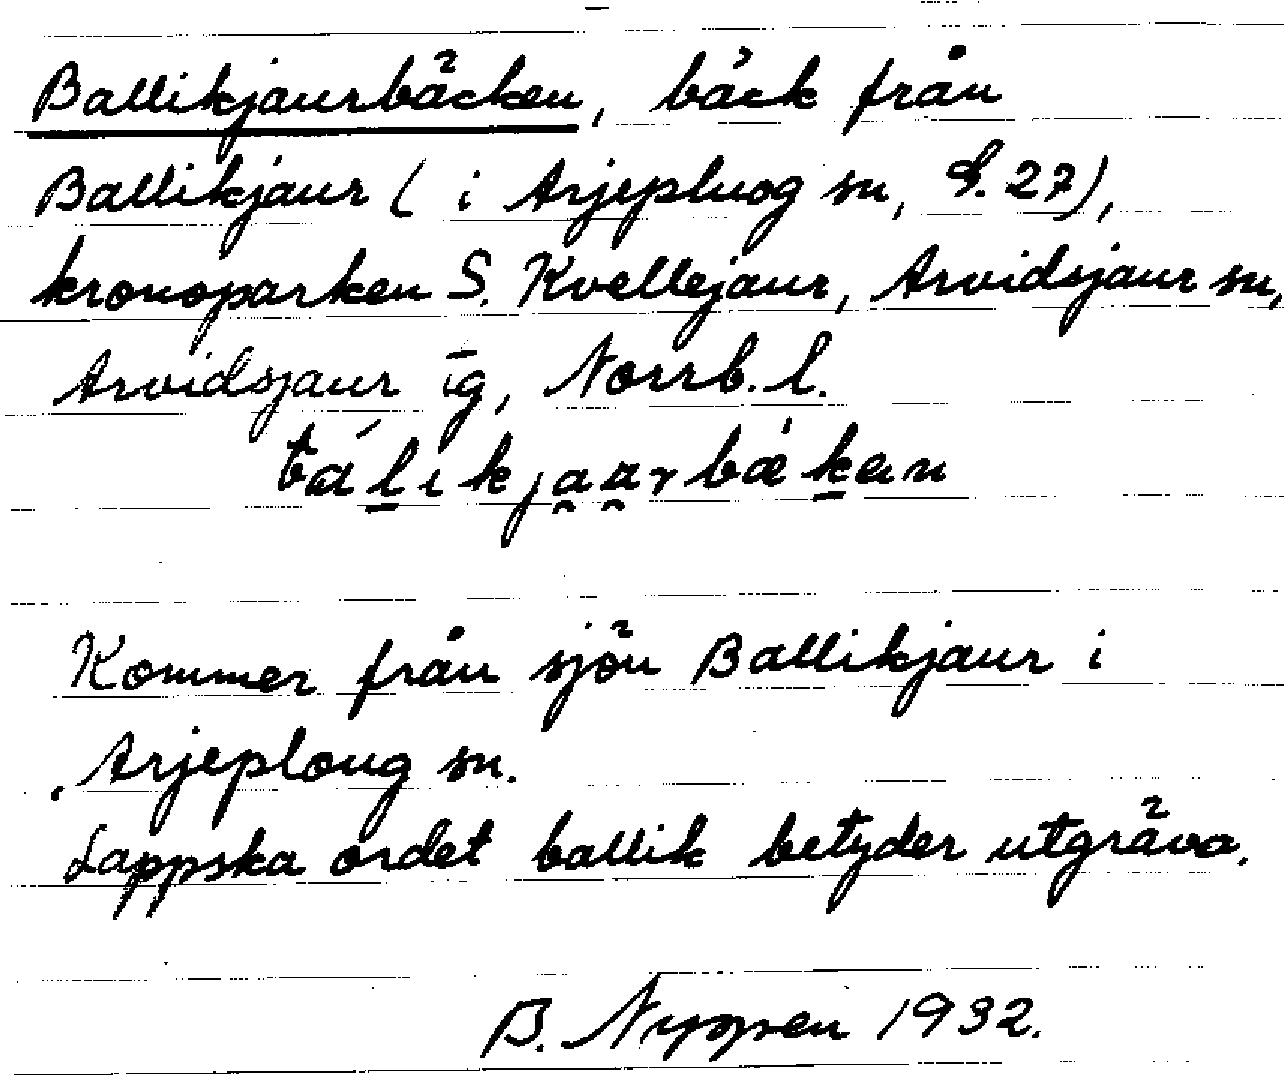 Ballikjaurbäcken, bäck från
Ballikjaur ( i Arjepluog sn, S. 27),
kronoparken S. Kvellejaur, Arvidsjaur sn,
Arvidsjaur tg, Norrb. l.
Kommer från sjön Ballikjaur i
Arjeploug sn.
Lappska ordet ballik betyder utgräva.
B. Nyppen 1932.